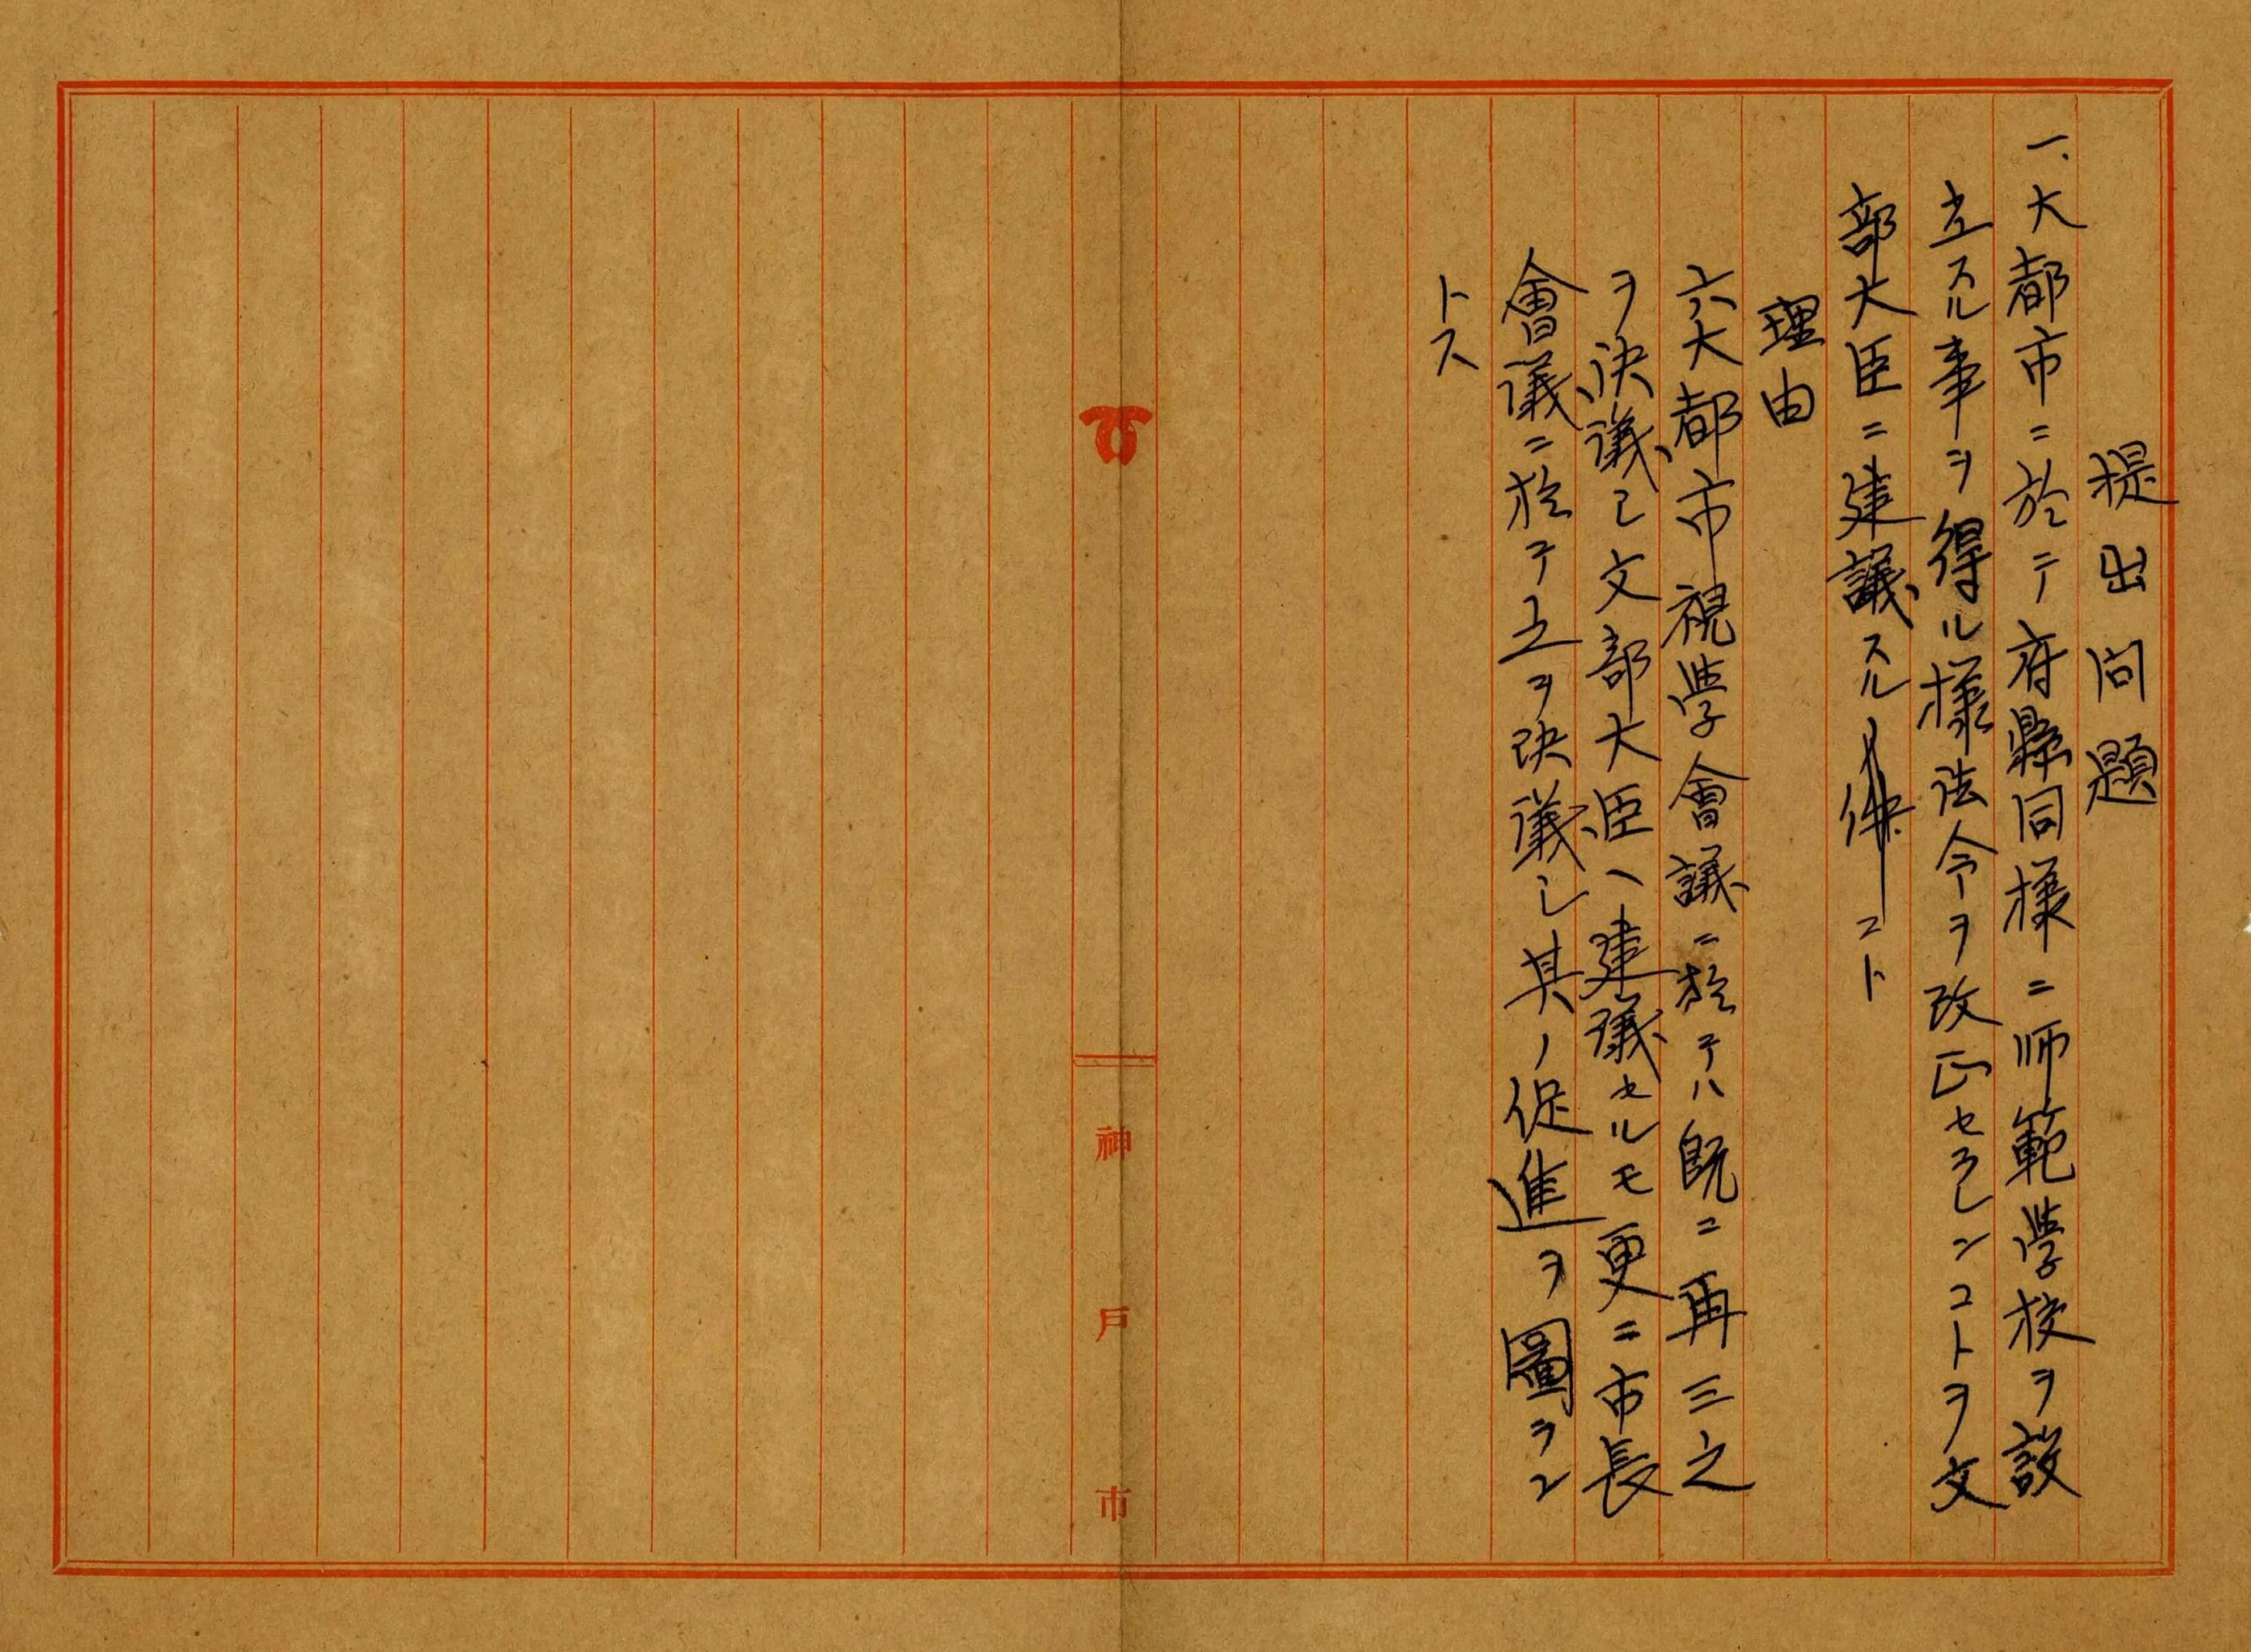 提出問題
一、大都市ニ於テ府縣同様ニ師範學校ヲ設
立スル事ヲ得ル様法令ヲ改正セラレンコトヲ文
部大臣ニ建議スルコト
理由
六大都市視學會議ニ於テハ既ニ再三之
ヲ決議シ文部大臣ヘ建議セルモ更ニ市長
會議ニ於テ之ヲ決議シ其ノ促進ヲ圖ラン
トス
神戸市